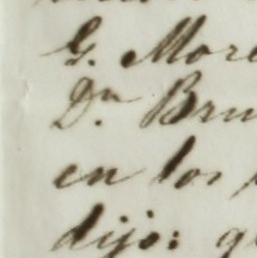 G. More
Dn. Bru
en los
dijo: q